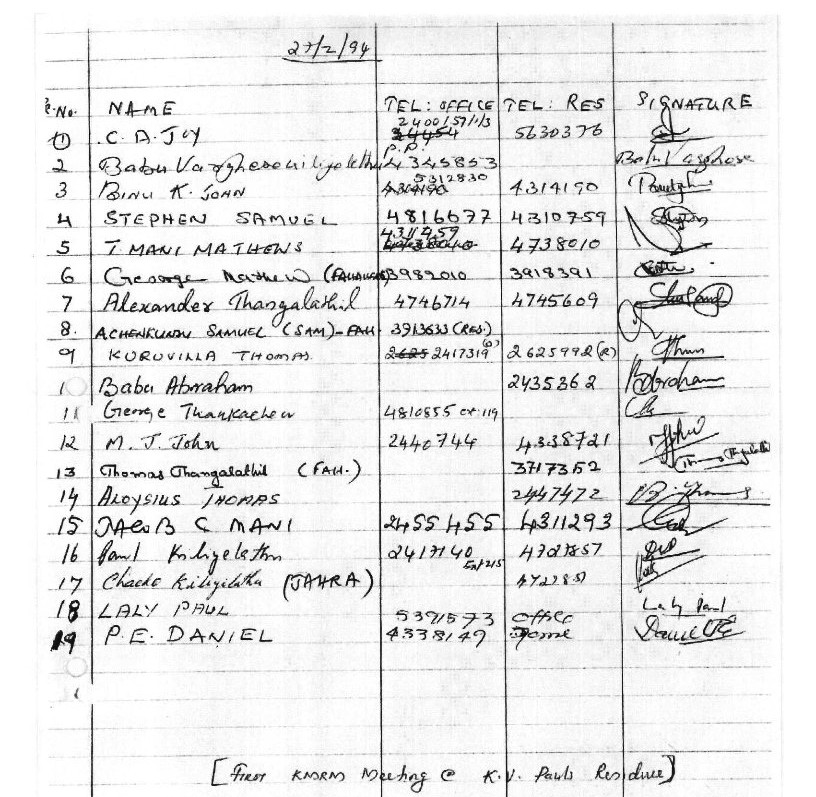 27/2/94
S.No. NAME TEL: OFFICE TEL: RES SIGNATURE
1 C. A. JOY 2400157/1/3 5630376
2 Babu Varghese P.P. 4345853 Babu Varghese
3 BINU K. JOHN 5312830 4314190
4 STEPHEN SAMUEL 4816677 4310759
5 T. MANI MATHEWS 4311459 4738010
6 George Mathew 3982010 3918391
7 Alexander Thangalathil 4746714 4745609
8. ACHENKUNJU SAMUEL (SAM)-FAH. 3913633 (RES.)
9 KURUVILLA THOMAS. 2417319 (O) 2625992 (R)
10 Babu Abraham 2435362 BAbraham
11 George Thankachen 4810855 ext 119
12 M. J. John 2440744 4338721
13 Thomas Thangalathil (FAH.) 3717352 Thomas Thangalathil
14 ALOYSIUS THOMAS 2447472
15 JACOB C MANI 2455455 4311293
16 Paul Kiliyelethu 2417140 Ext 215 4721857
17 Chacko (JAHRA)
18 LALY PAUL 5391573 office Laly Paul
19 P.E. DANIEL 4338149 Home Daniel PE
[First KMRM Meeting @ K.V. Pauls Residence]